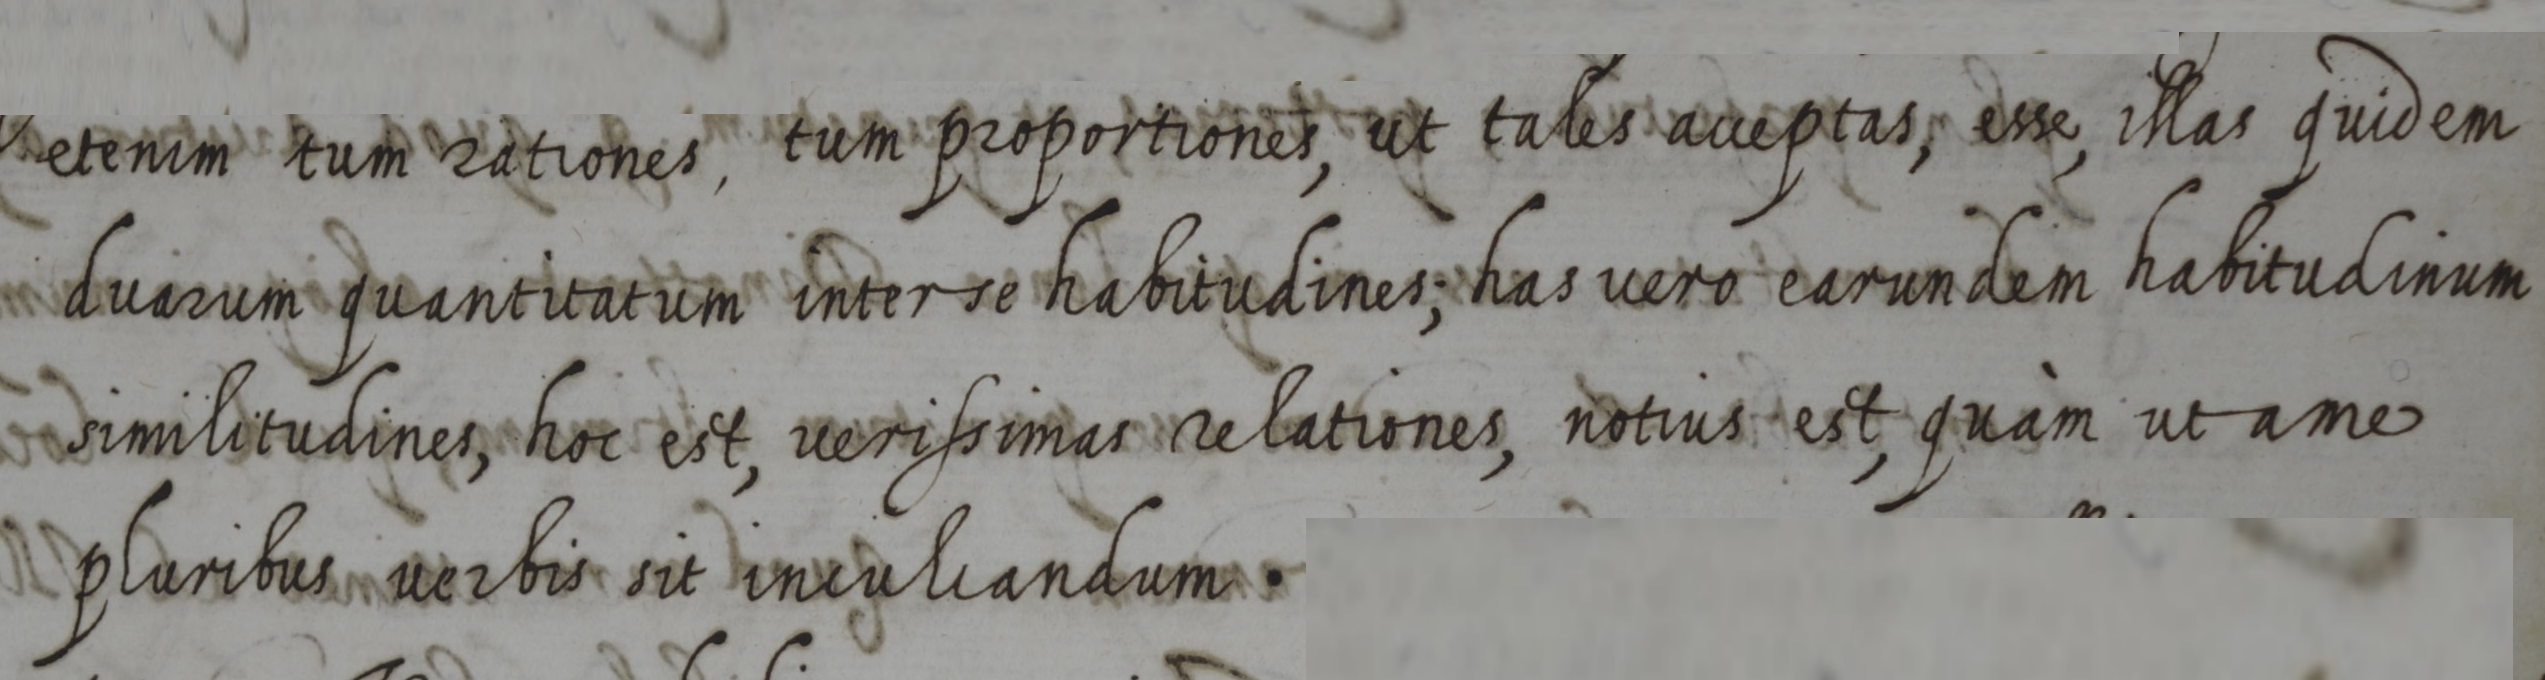 etenim tum rationes, tum proportiones, ut tales acceptas, esse, illas quidem
duarum quantitatum inter se habitudines; has uero earundem habitudinum
similitudines, hoc est, uerissimas relationes, notius est, quàm ut a me
pluribus uerbis sit inculcandum.